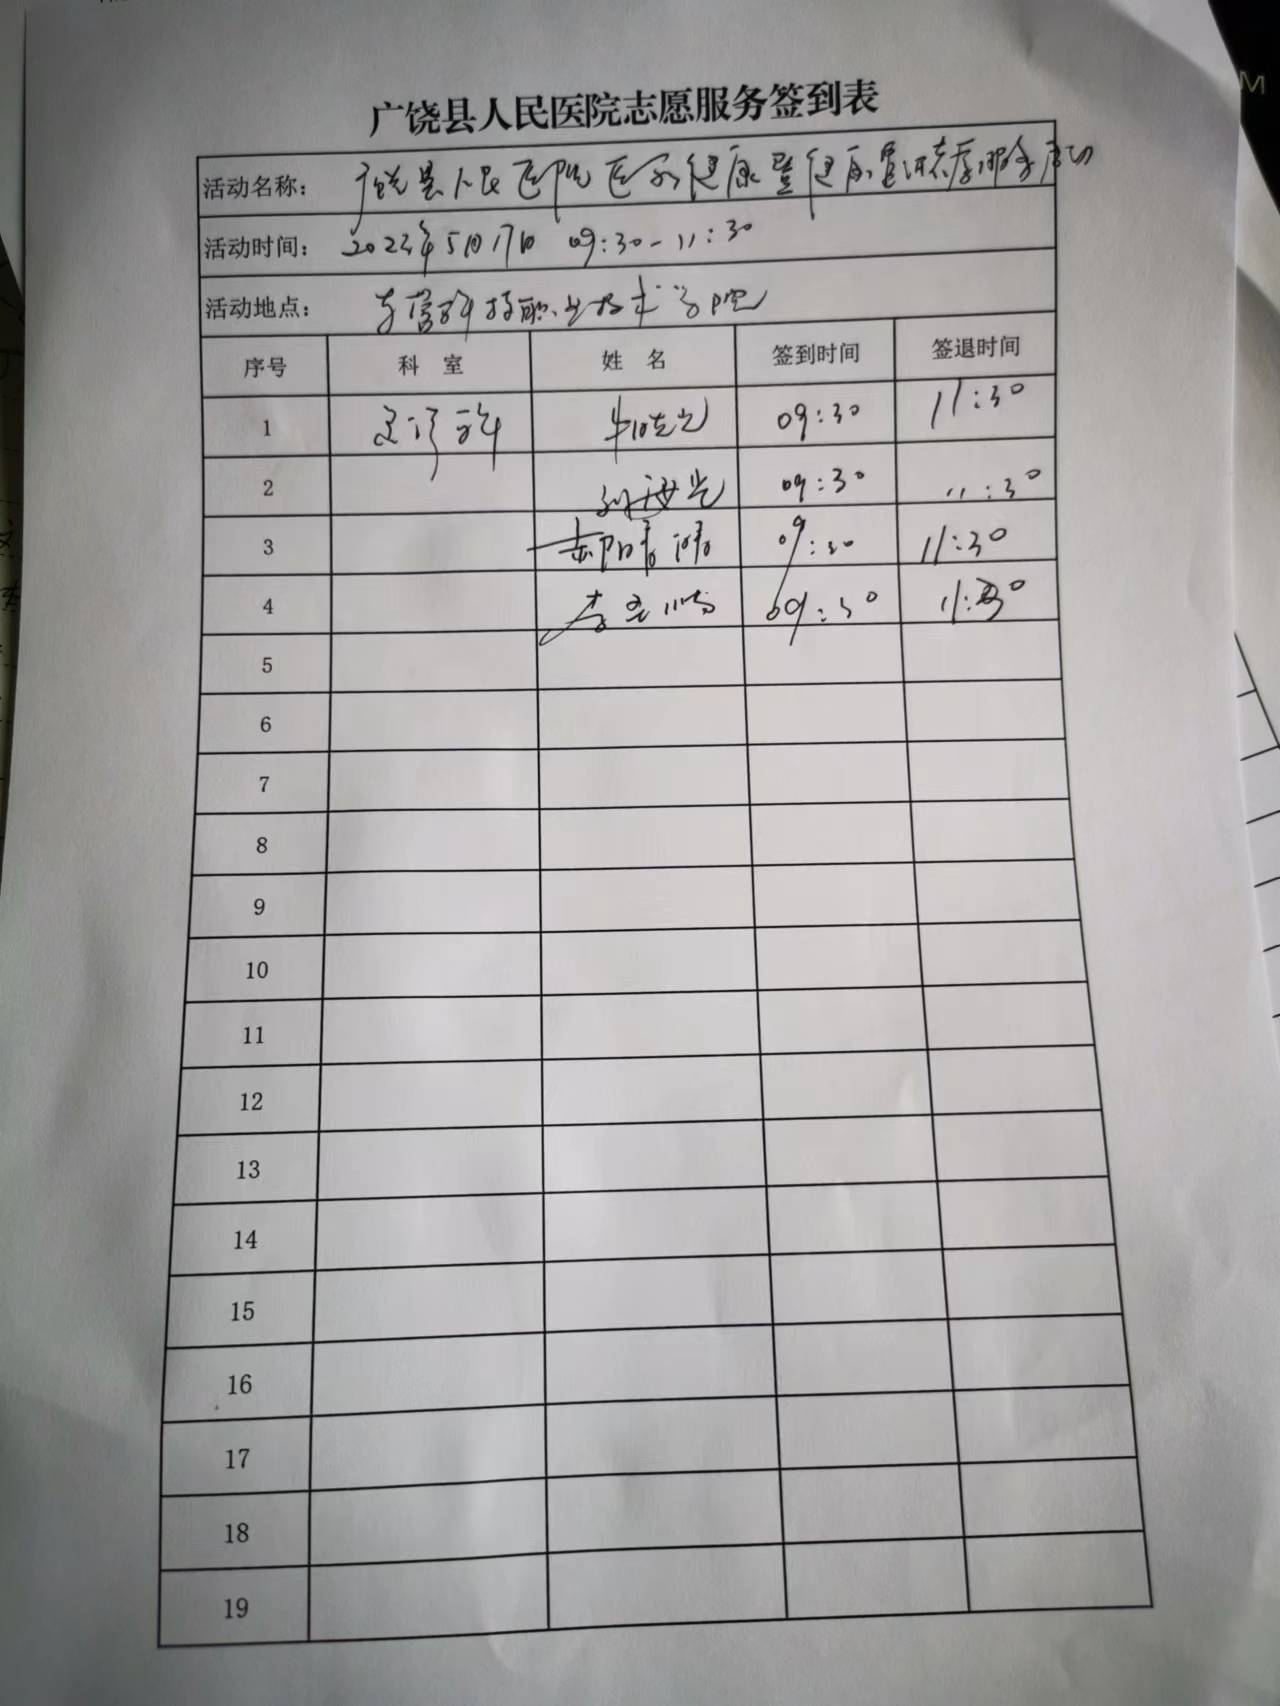 广饶县人民医院志愿服务签到表
活动名称： 广饶县人民医院医学健康暨健康宣讲志愿服务活动
活动时间： 2023年5月17日 09:30-11:30
活动地点： 东营科技职业技术学院
序号 科 室 姓 名 签到时间 签退时间
1 09:30 11:30
2 09:30 11:30
3 郝晴晴 09:30 11:30
4 09:30 11:30
5
6
7
8
9
10
11
12
13
14
15
16
17
18
19
M